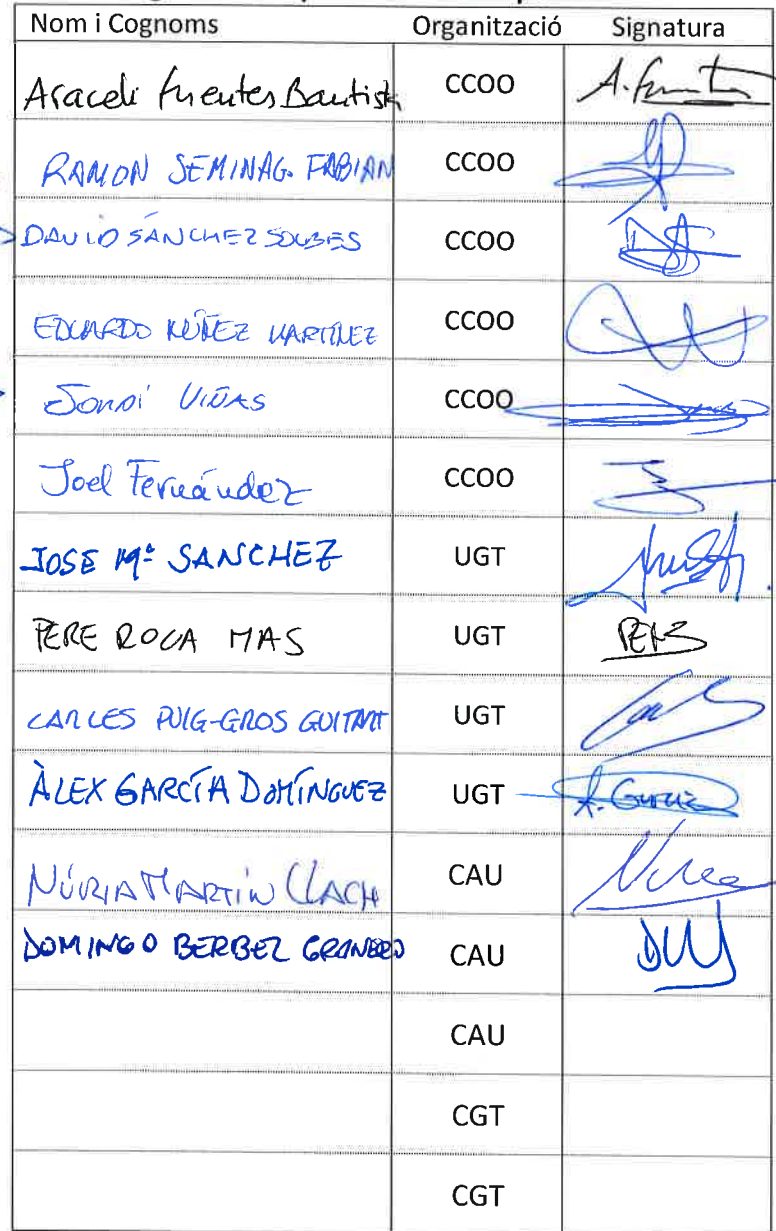 Nom i Cognoms Organització Signatura
Araceli Fuentes Bautista CCOO A. Fuentes
RAMON SEMINAG. FABIAN CCOO
DAVID SÁNCHEZ SOUBES CCOO
EDUARDO NÚÑEZ MARTÍNEZ CCOO
JORDI VIÑAS CCOO
Joel Fernández CCOO
JOSE Mª SANCHEZ UGT
PERE ROCA MAS UGT PERE
CARLES PUIG-GROS GUITART UGT
ÀLEX GARCÍA DOMÍNGUEZ UGT A. García
NÚRIA MARTÍN LLACH CAU
DOMINGO BERBEL GRANERO CAU
CAU
CGT
CGT